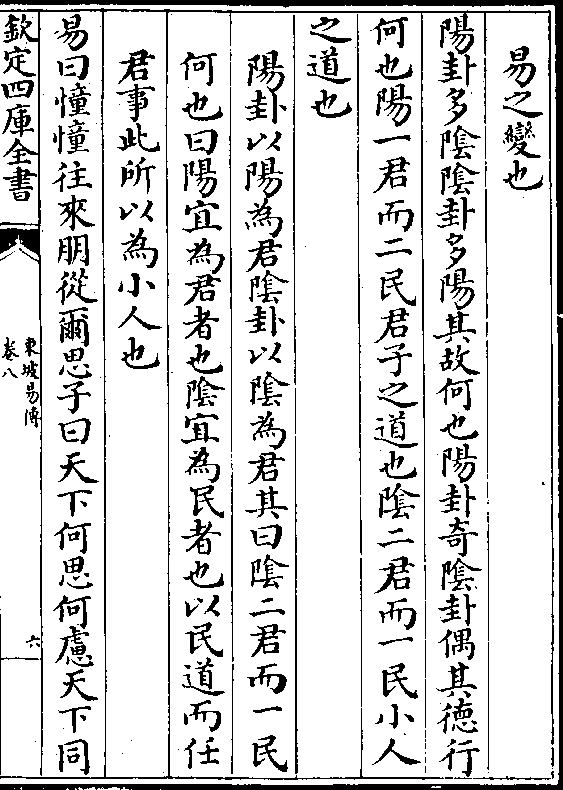 易之變也
陽卦多陰陰卦多陽其故何也陽卦奇陰卦偶其德行
何也陽一君而二民君子之道也陰二君而一民小人
之道也
陽卦以陽為君陰卦以陰為君其曰陰二君而一民
何也曰陽宜為君者也陰宜為民者也以民道而任
君事此所以為小人也
易曰憧憧往來朋從爾思子曰天下何思何慮天下同
欽定四庫全書
東坡易傳
卷八
六